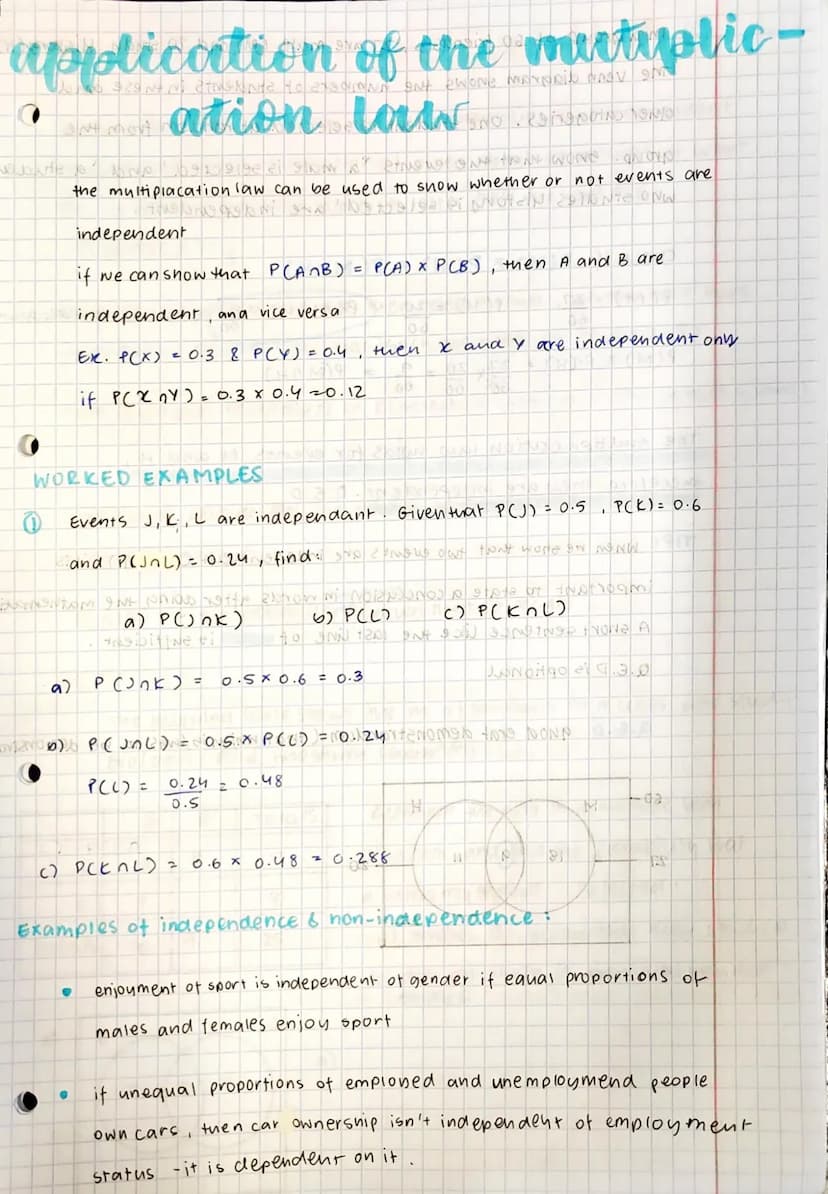 application of the multyplic-
ation law
the multiplacation law can be used to show whether or not events are
independent
if we can show that P(A∩B) = P(A) x P(B), then A and B are
independent, and vice versa
Ex. P(X) = 0.3 & P(Y) = 0.4, then x and y are independent only
if P(X∩Y) = 0.3 x 0.4 = 0.12
WORKED EXAMPLES
① Events J, K, L are independant. Given that P(J) = 0.5, P(K) = 0.6
and P(J∩L) = 0.24, find:
a) P(J∩K) b) P(L) c) P(K∩L)
a) P(J∩K) = 0.5 x 0.6 = 0.3
b) P(J∩L) = 0.5 x P(L) = 0.24
P(L) = 0.24/0.5 = 0.48
c) P(K∩L) = 0.6 x 0.48 = 0.288
Examples of independence & non-independence:
• enjoyment of sport is independent of gender if equal proportions of
males and females enjoy sport
• if unequal proportions of employed and unemploymend people
own cars, then car ownership isn't independent of employment
status - it is dependent on it.